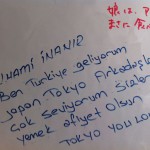 娘は、ア
まさに食
UNAMI İNANIR
Ben Türkiye geliyorum
Japon Tokyo Arkadaşla
Çok Seviyorum Sizler
yemek afiyet Olsun
TOKYO YOLLAR